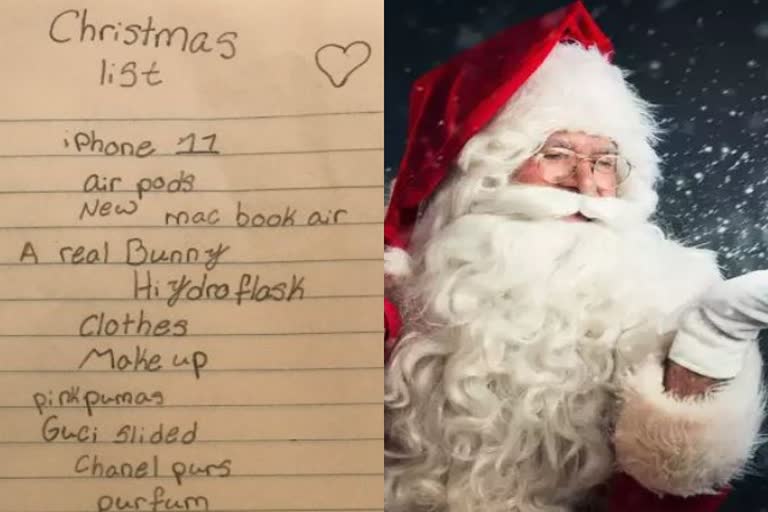 Christmas
list
iPhone 11
air pods
New mac book air
A real Bunny
Hiydroflask
Clothes
Make up
pink pumas
Guci slided
Chanel purs
purfum